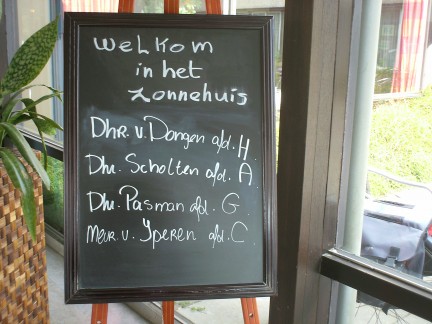 Welkom
in het
Zonnehuis
Dhr. v. Dongen afd. H
Dhr. Scholten afd. A
Dhr. Pasman afd. G
Mevr. v. Yperen afd. C